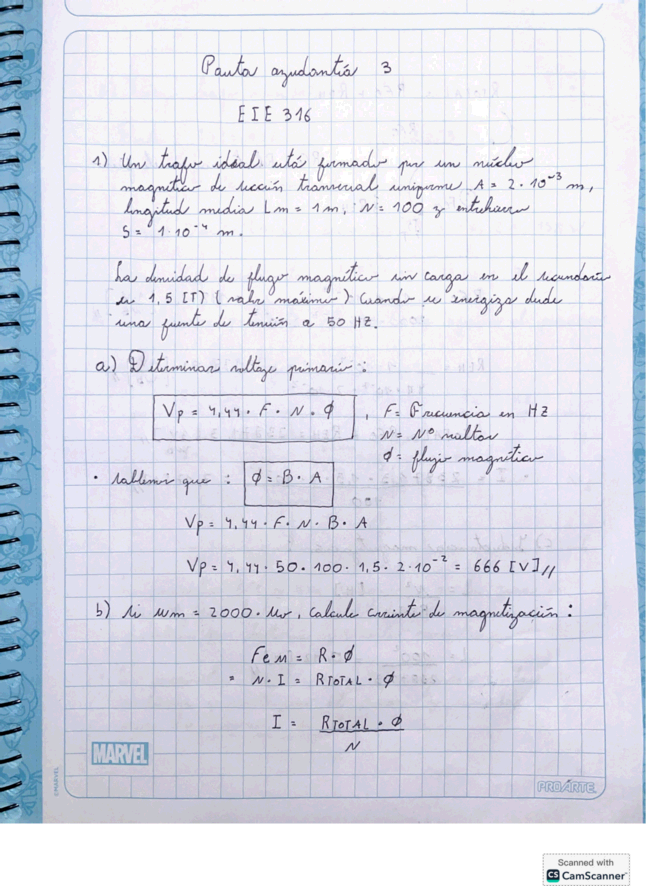 Pauta ayudantía 3
EIE 316
1) Un trafo ideal está formado por un núcleo
magnético de sección transversal uniforme A = 2 · 10⁻³ m,
longitud media Lm = 1 m, N = 100 y entrehierro
S = 1·10⁻⁴ m.
La densidad de flujo magnético sin carga en el secundario
es 1,5 [T] (valor máximo) Cuando se energiza desde
una fuente de tensión a 50 HZ.
a) Determinar voltaje primario :
Vp = 4,44 · F · N · φ , F = Frecuencia en HZ
N = N° vueltas
φ = flujo magnético
· sabemos que : φ = B · A
Vp = 4,44 · F · N · B · A
Vp = 4,44 · 50 · 100 · 1,5 · 2·10⁻² = 666 [V] //
b) si um = 2000 · uo, calcule corriente de magnetización :
Fem = R · φ
= N · I = RTOTAL · φ
I = RTOTAL · φ
N
MARVEL
©MARVEL
PROARTE
Scanned with
CS CamScanner